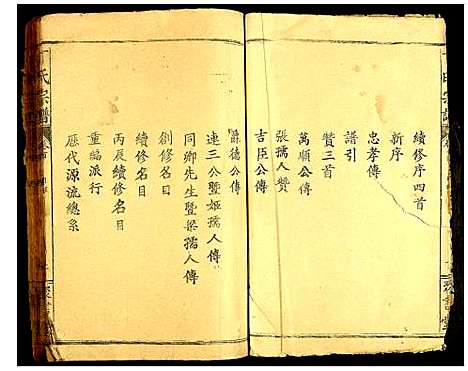 續修序四首
新序
忠孝傳
譜引
贊三首
萬順公傳
張孺人贊
吉臣公傳
爵德公傳
連三公暨姬孺人傳
同鄉先生暨梁孺人傳
創修名目
續修名目
丙辰續修名目
重編派行
歷代源流總系
氏宗譜